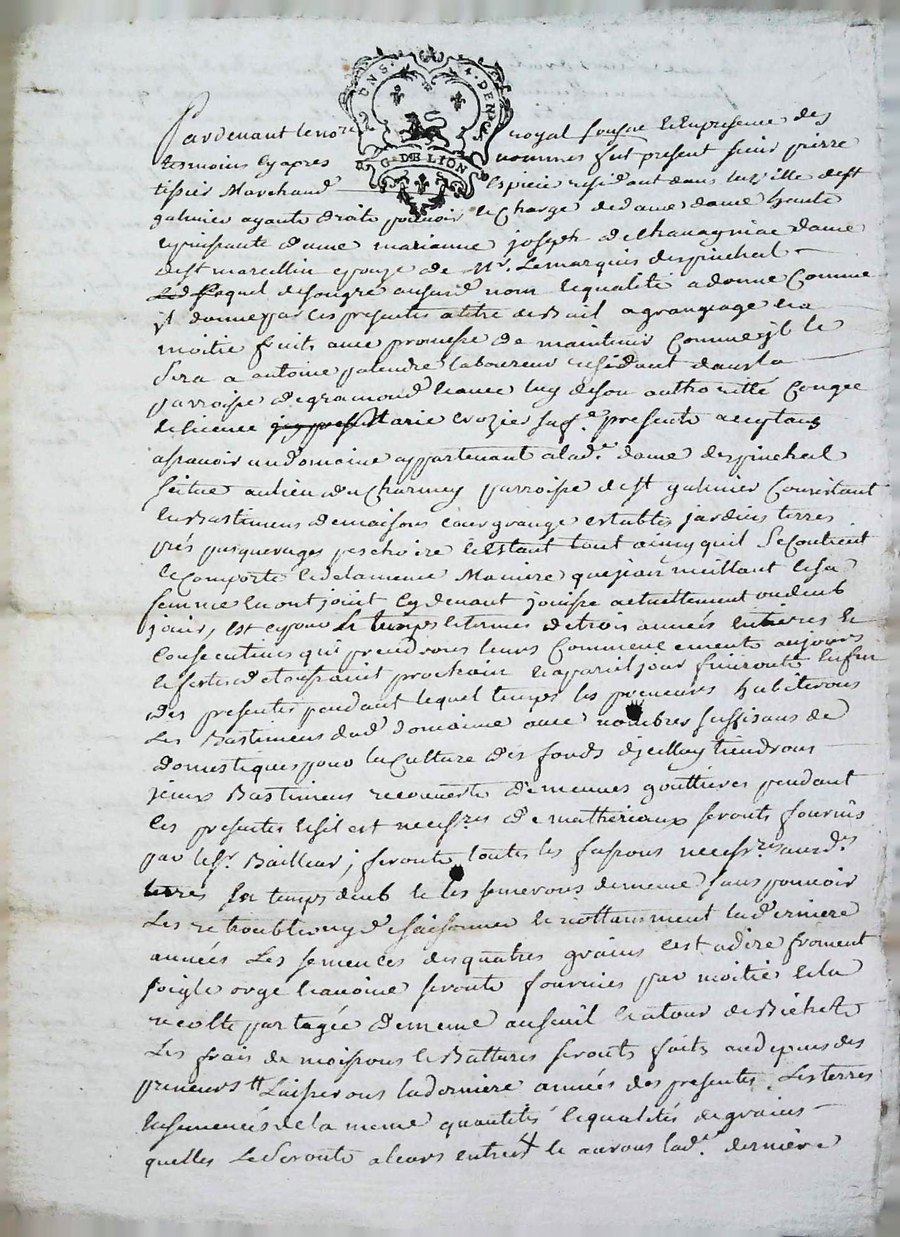 UNS. 4. DEN
G. DE LION
Pardevant le no.re royal sousné et en presence des
tesmoins cy apres nommes fut present sieur pierre
tessier Marchand Espicier residant dans la ville de st
galmier ayant droit pouvoir et charge de dame dame haute
et puissante dame marianne joseph de chavagniac dame
de st marcellin epouze de Mr. Lemarquis despinchal
Lequel de son gré aud nom et qualité a donné comme
il donne par les presentes a titre de Bail a grangeage et a
moitié fruits avec promesse de maintenir comme jl le
sera a antoine palendre laboureur residant dans la
parroisse de gramond et avec luy de son authorité congée
et licence Marie crozier sa fe. presente acceptans
a sçavoir un domaine appartenant a lad. dame despinchal
scitue au lieu du Charmey parroisse de st galmier consistant
en Bastimens de maisons cour grange estables jardins terres
prés pasquerages peschoire et estant tout ainsy quil se contient
et comporte et de la meme Maniere que jean meillant et sa
femme en ont joint cy devant jouisse actuellement ou deub
jouir, est ce pour le temps et termes de trois années entieres et
consecutives qui prendrons leurs commencements aujours
et festes de toussaint prochain et a pareil jour finiront en fin
des presentes pendant lequel temps les preneurs habiterons
Les Bastimens dud domaine avec nombres suffisans de
domestiques pour la culture des fonds dicelluy tiendrons
jceux Bastimens recouverts de menues gouttieres pendant
les presentes et sil est necess.res de matheriaux seronts fournis
par le sr. Bailleur; feronts toutes les fasons necess.res aud.
terres en temps deub et les semerons de meme sans pouvoir
Les retroubler ny desaisonner et nottamment la derniere
année Les semences des quatres grains cest a dire froment
soigle orge et avoine seronts fournies par moitié et la
recolte partagée de meme au seuil et atour de Bichet
Les frais de moissons et Battures seronts faits aux depens des
preneurs Laisserons la derniere années des presentes Les terres
ensemencés de la meme quantités et qualités de grains
quelles Le seronts a leurs entrées et aurons lad. derniere